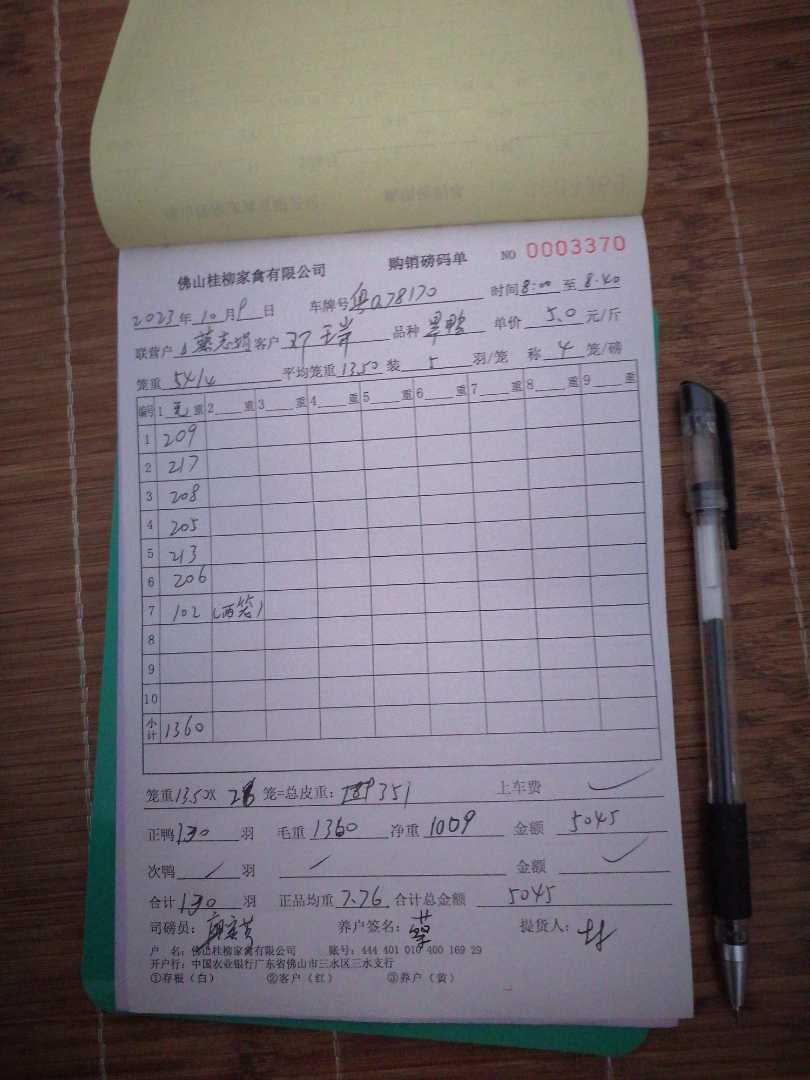 佛山桂柳家禽有限公司 购销磅码单 NO 0003370
2023年10月9日 车牌号粤Q78170 时间8:00至8:40
联营户 客户 品种 单价5.0元/斤
笼重54/4 平均笼重13.50装5羽/笼 称4笼/磅
编号 1毛重 2重 3重 4重 5重 6重 7重 8重 9重
1 209
2 217
3 208
4 205
5 213
6 206
7 102 (两笼)
8
9
10
小计 1360
笼重13.50× 26笼=总皮重: 351 上车费 ✓
正鸭130羽 毛重1360 净重1009 金额5045
次鸭/羽 / 金额 ✓
合计130羽 正品均重7.76 合计总金额5045
司磅员: 养户签名: 提货人:
户 名: 佛山桂柳家禽有限公司 账号: 444 401 010 400 169 29
开户行: 中国农业银行广东省佛山市三水区三水支行
①存根(白) ②客户(红) ③养户(黄)